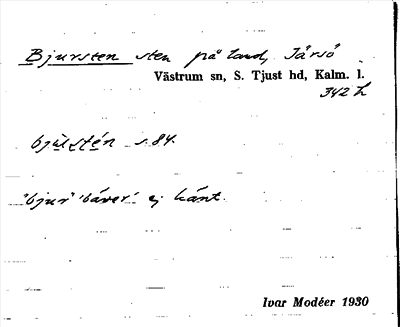 Bjursten sten på land, Järsö
Västrum sn, S. Tjust hd, Kalm. l.
342 L
bjùlstén s. 84.
"bjur" 'bäver' ej känt.
Ivar Modéer 1930